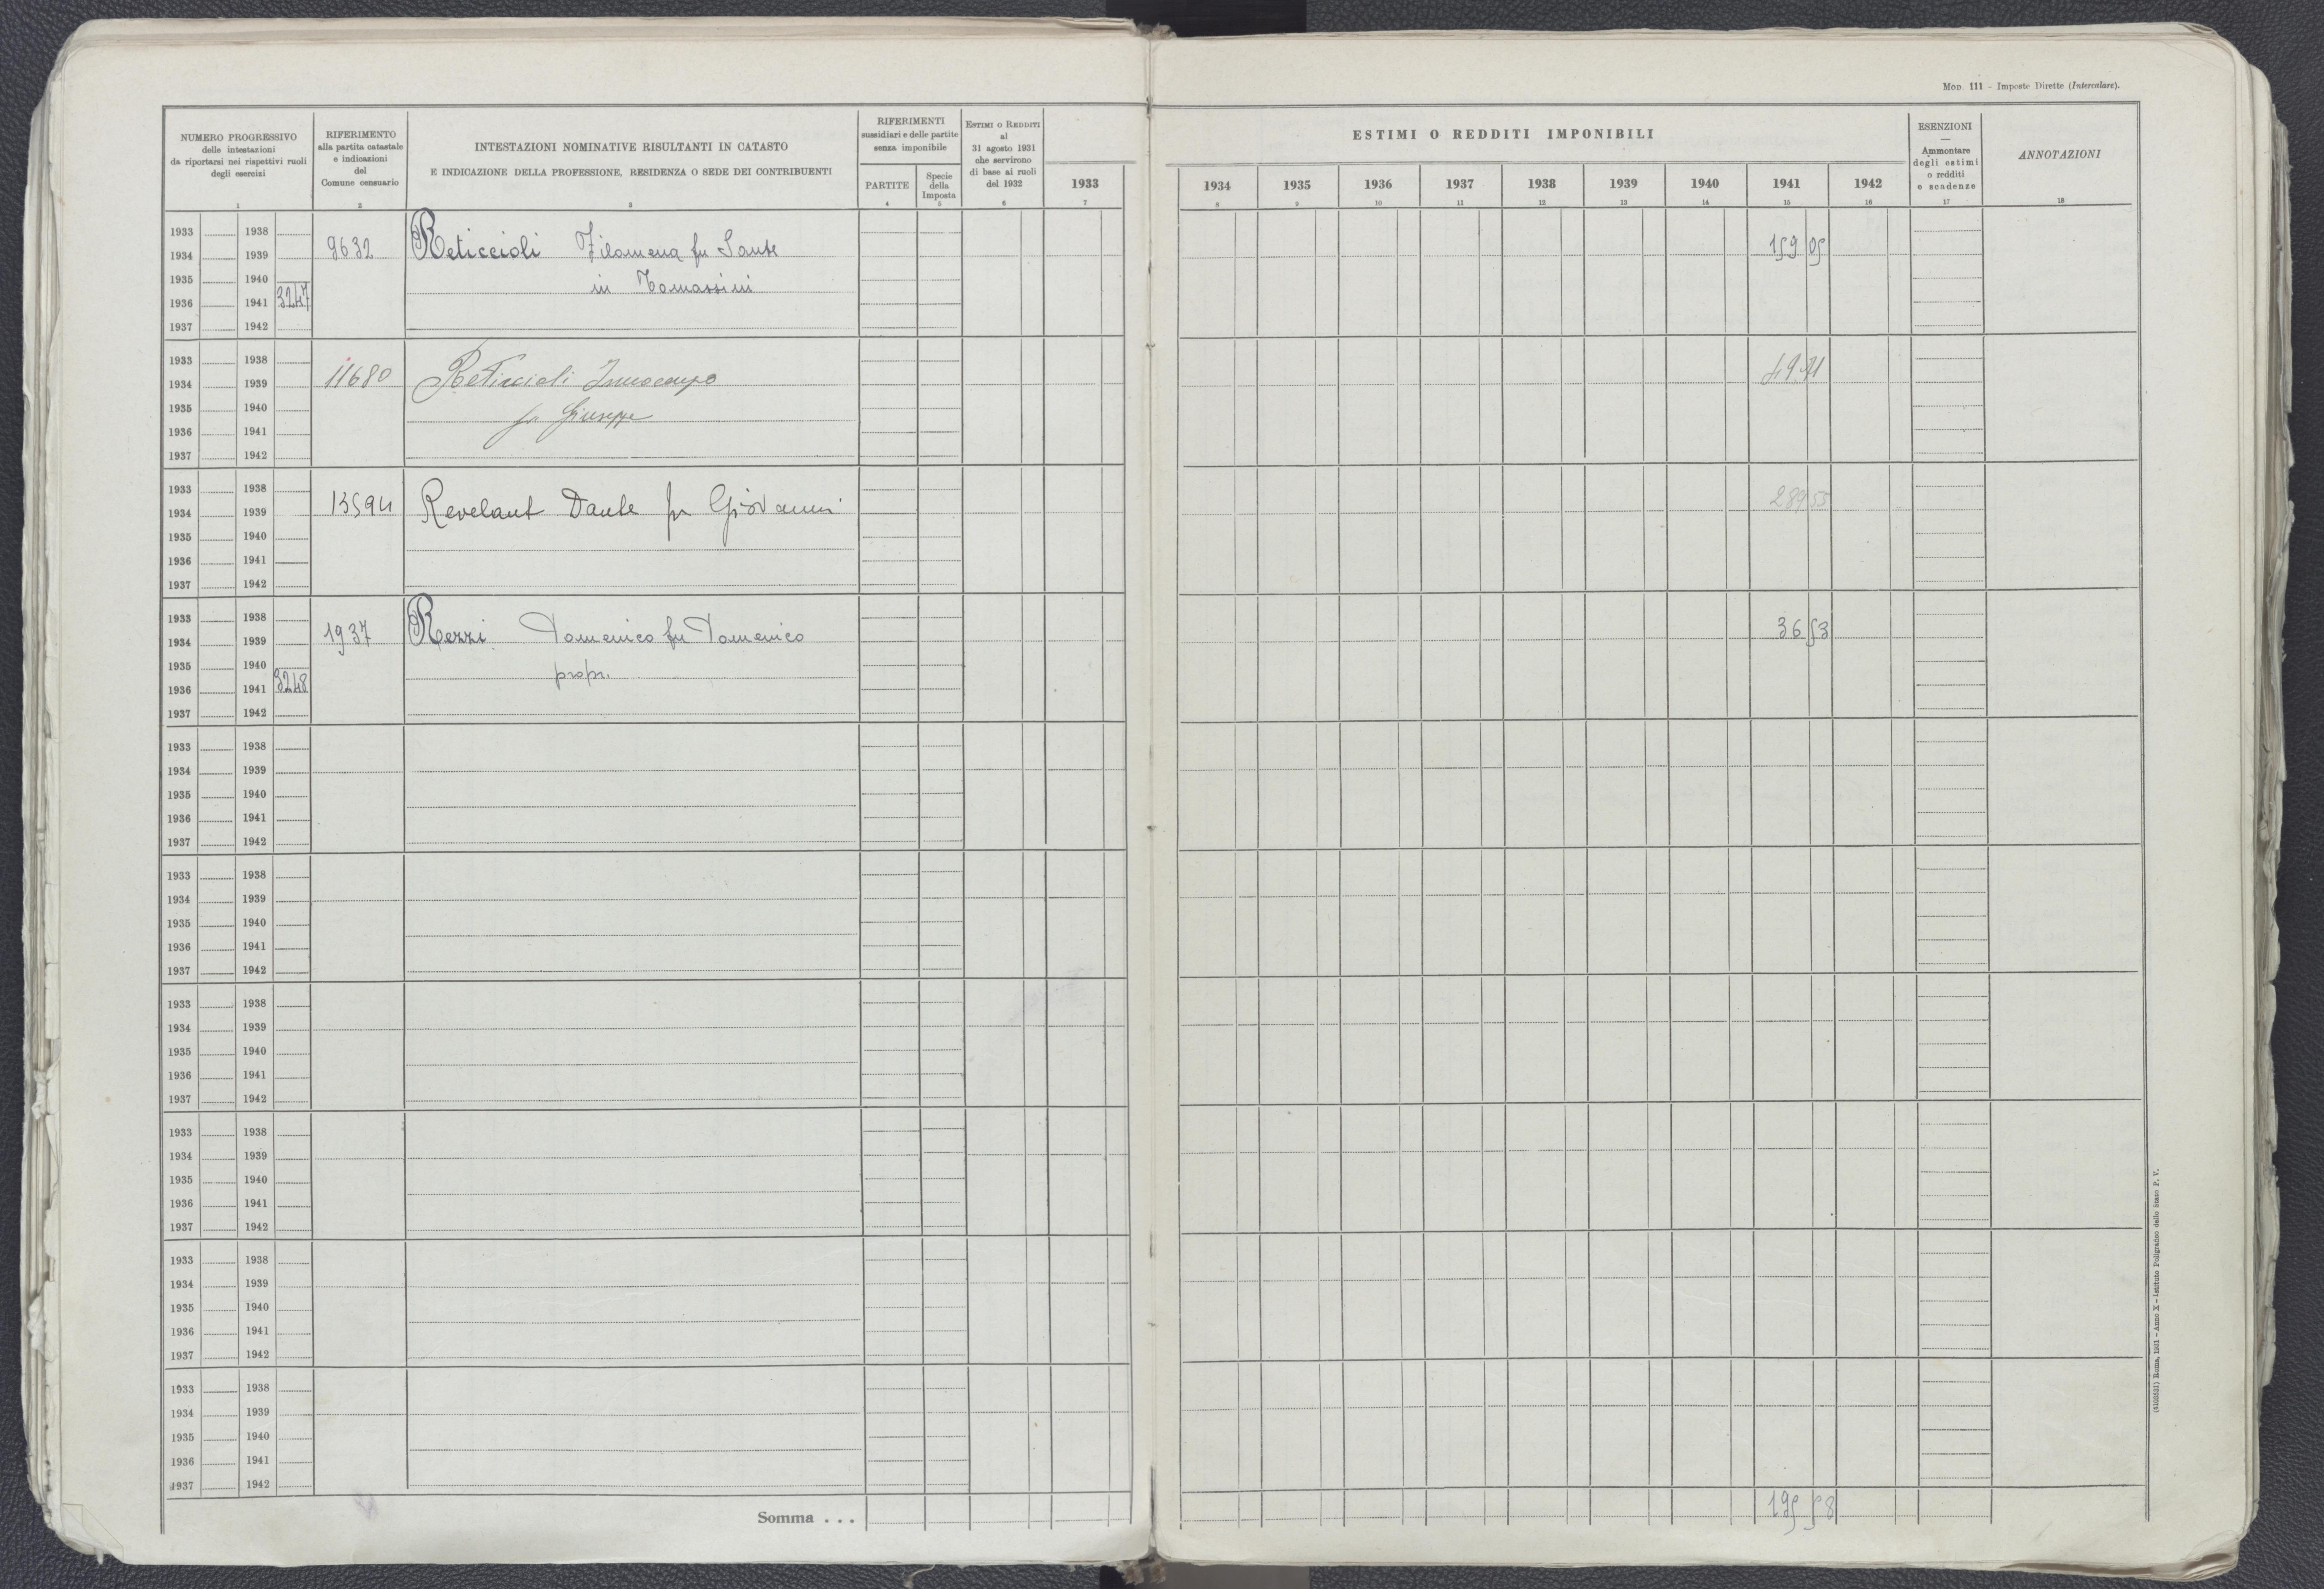 Mod. 111 – Imposte Dirette (Intercalare).
NUMERO PROGRESSIVO
delle intestazioni
da riportarsi nei rispettivi ruoli
degli esercizi
1
RIFERIMENTO
alla partita catastale
e indicazioni
del
Comune censuario
2
INTESTAZIONI NOMINATIVE RISULTANTI IN CATASTO
E INDICAZIONE DELLA PROFESSIONE, RESIDENZA O SEDE DEI CONTRIBUENTI
3
RIFERIMENTI
sussidiari e delle partite
senza imponibile
PARTITE
4
Specie
della
Imposta
5
Estimi o Redditi
al
31 agosto 1931
che servirono
di base ai ruoli
del 1932
6
1933
7
ESTIMI O REDDITI IMPONIBILI
1934 1935 1936 1937 1938 1939 1940 1941 1942
8 9 10 11 12 13 14 15 16
ESENZIONI
—
Ammontare
degli estimi
o redditi
e scadenze
17
ANNOTAZIONI
18
1933 1938
1934 1939 9632 Reticcioli Filomena fu Sante 159 05
1935 1940 in Tomassini
1936 1941 3247
1937 1942
1933 1938
1934 1939 11680 Reticcioli
1935 1940 fu Giuseppe
1936 1941
1937 1942
1933 1938
1934 1939 13594 Revelant Dante fu Giovanni 289 55
1935 1940
1936 1941
1937 1942
1933 1938
1934 1939 1937 Rezzi Domenico fu Domenico 36 53
1935 1940 propr.
1936 1941 3248
1937 1942
1933 1938
1934 1939
1935 1940
1936 1941
1937 1942
1933 1938
1934 1939
1935 1940
1936 1941
1937 1942
1933 1938
1934 1939
1935 1940
1936 1941
1937 1942
1933 1938
1934 1939
1935 1940
1936 1941
1937 1942
1933 1938
1934 1939
1935 1940
1936 1941
1937 1942
1933 1938
1934 1939
1935 1940
1936 1941
1937 1942
Somma . . . 195 58
Roma, 1931 – Anno X – Istituto Poligrafico dello Stato P. V.